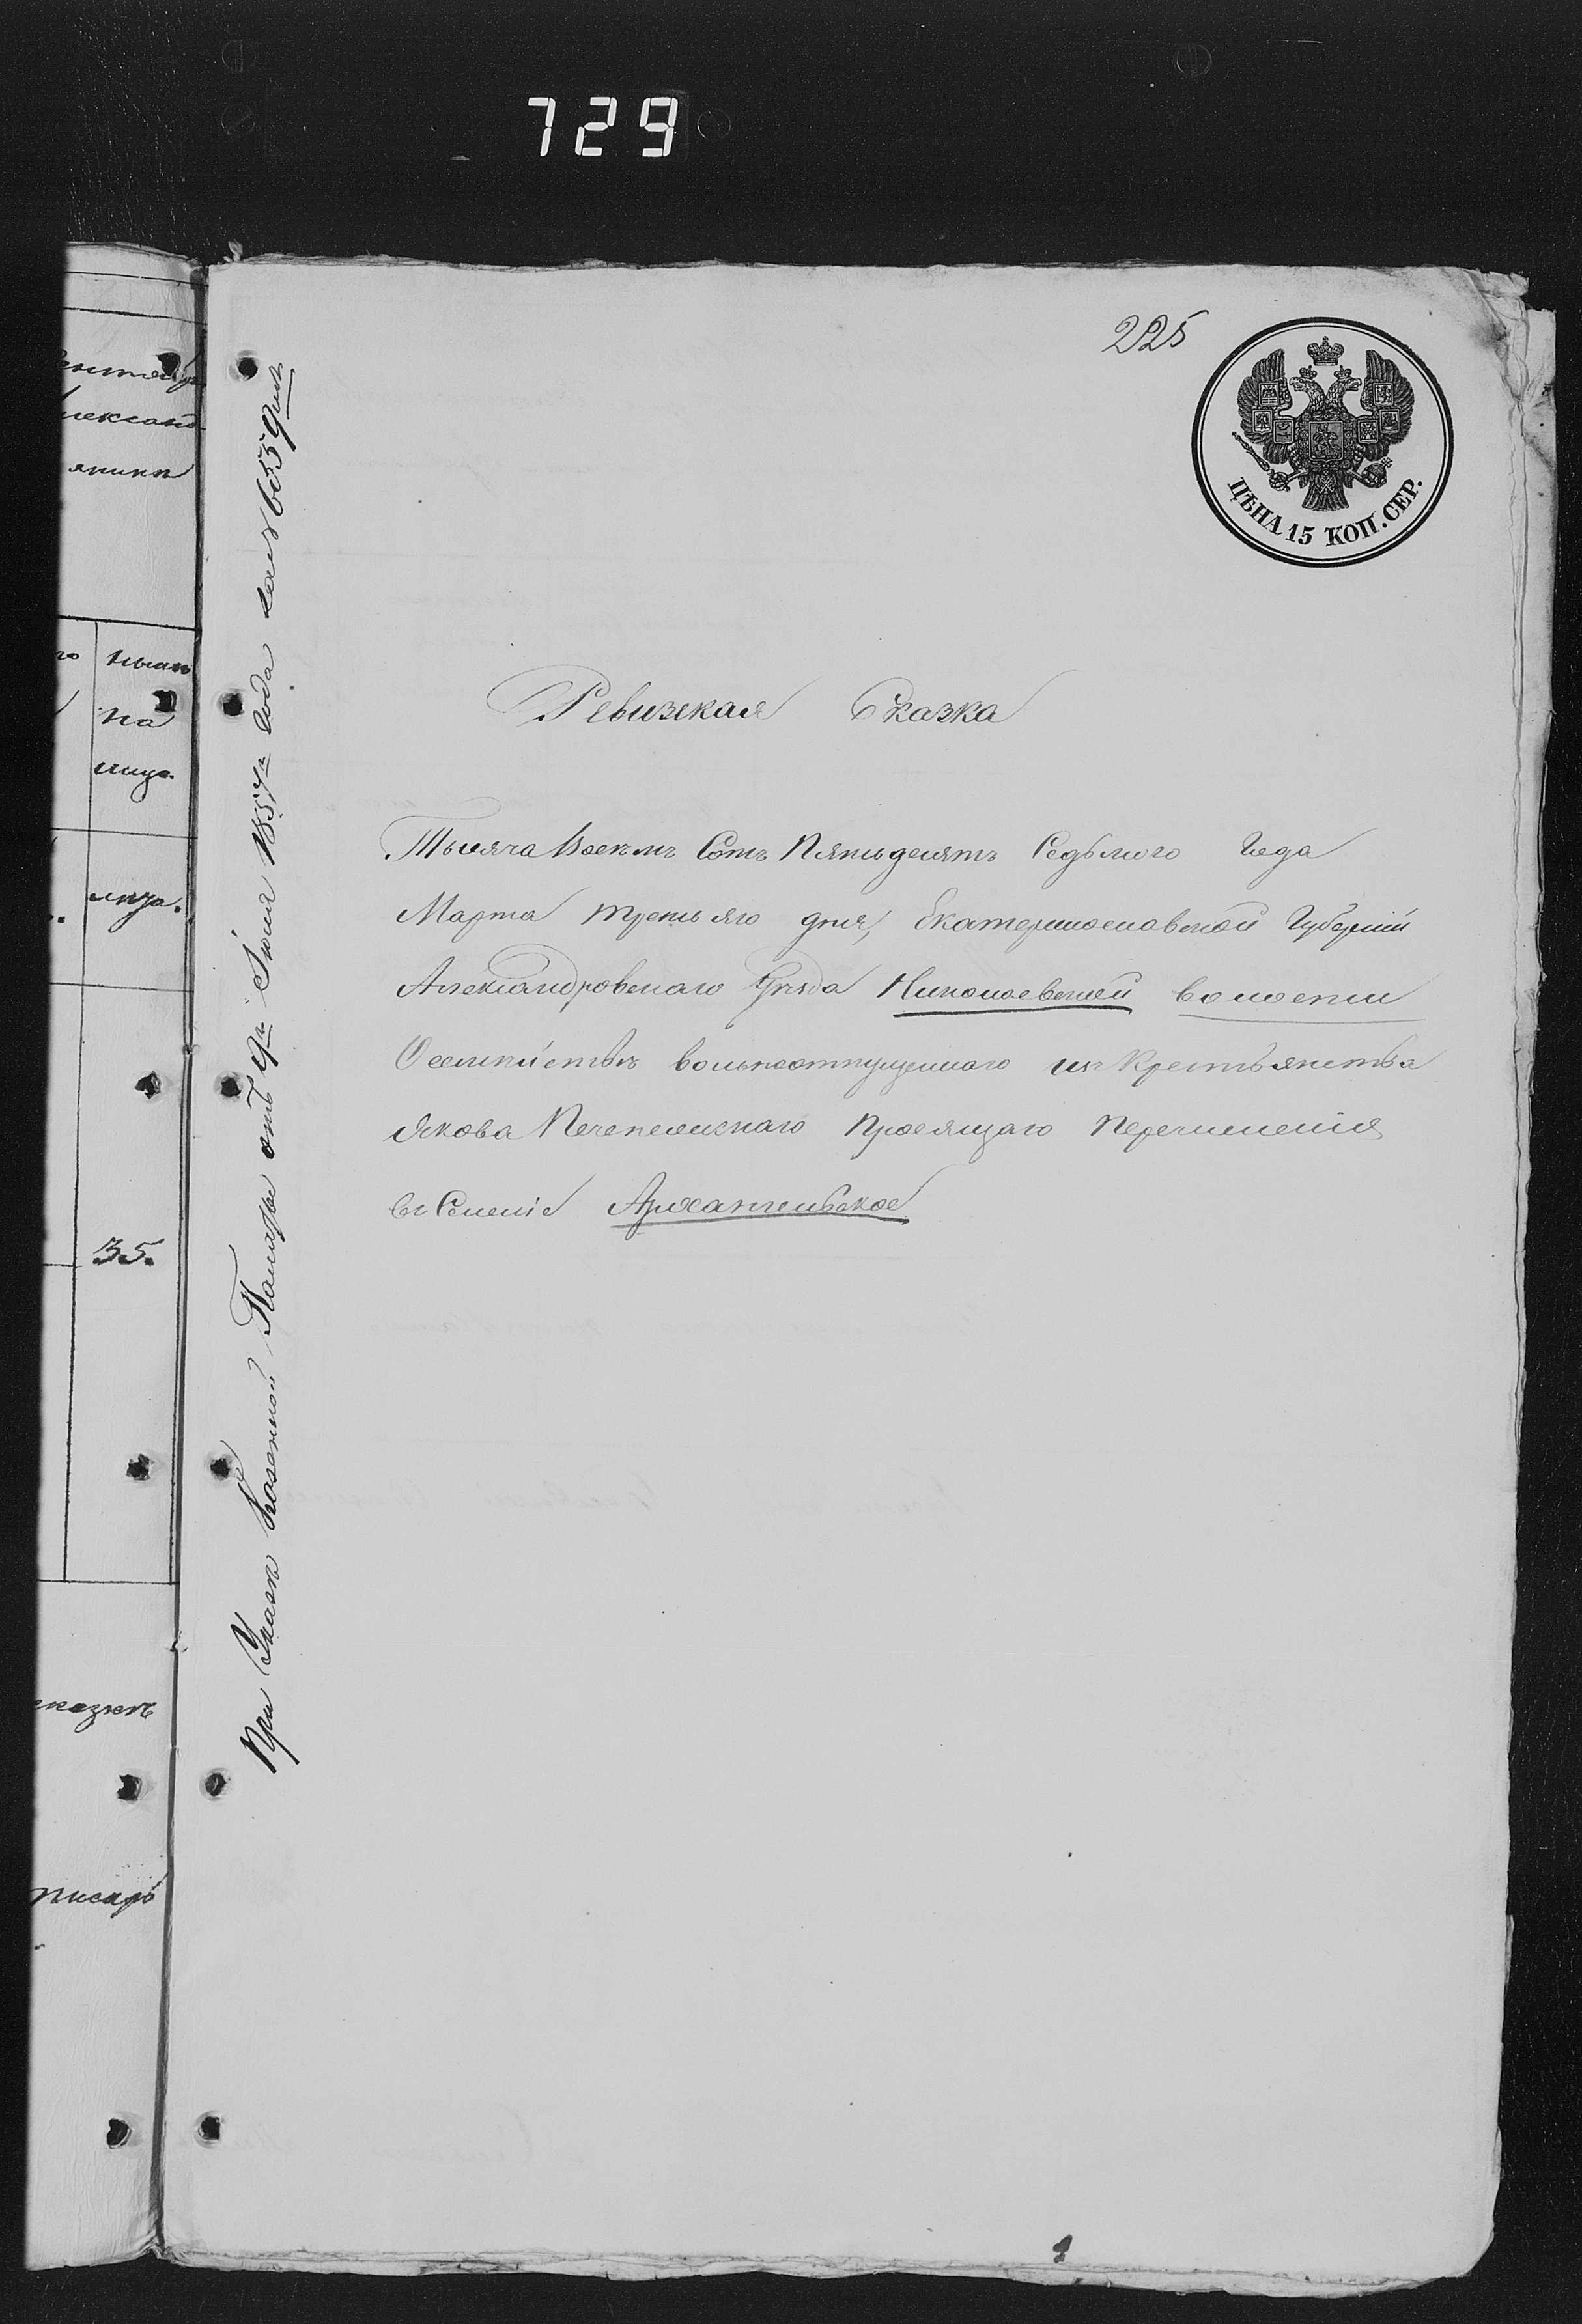 729
225
ЦѢНА 15 КОП. СЕР.
Ревизская Сказка
Тысяча Восемъ Сотъ Пятьдесятъ Седьмого Года
Марта третьяго дня, Екатеринославской Губерніи
Александровскаго Уѣзда Николаевской волости
О семействѣ вольноотпущеннаго изъ Крестьянства
Якова просящаго перечисленія
въ Селеніе Архангельское
При Указѣ Казенной Палаты отъ 9го Іюля 1857го года за №
нымъ
на
лицо.
лѣта.
35.
писарь